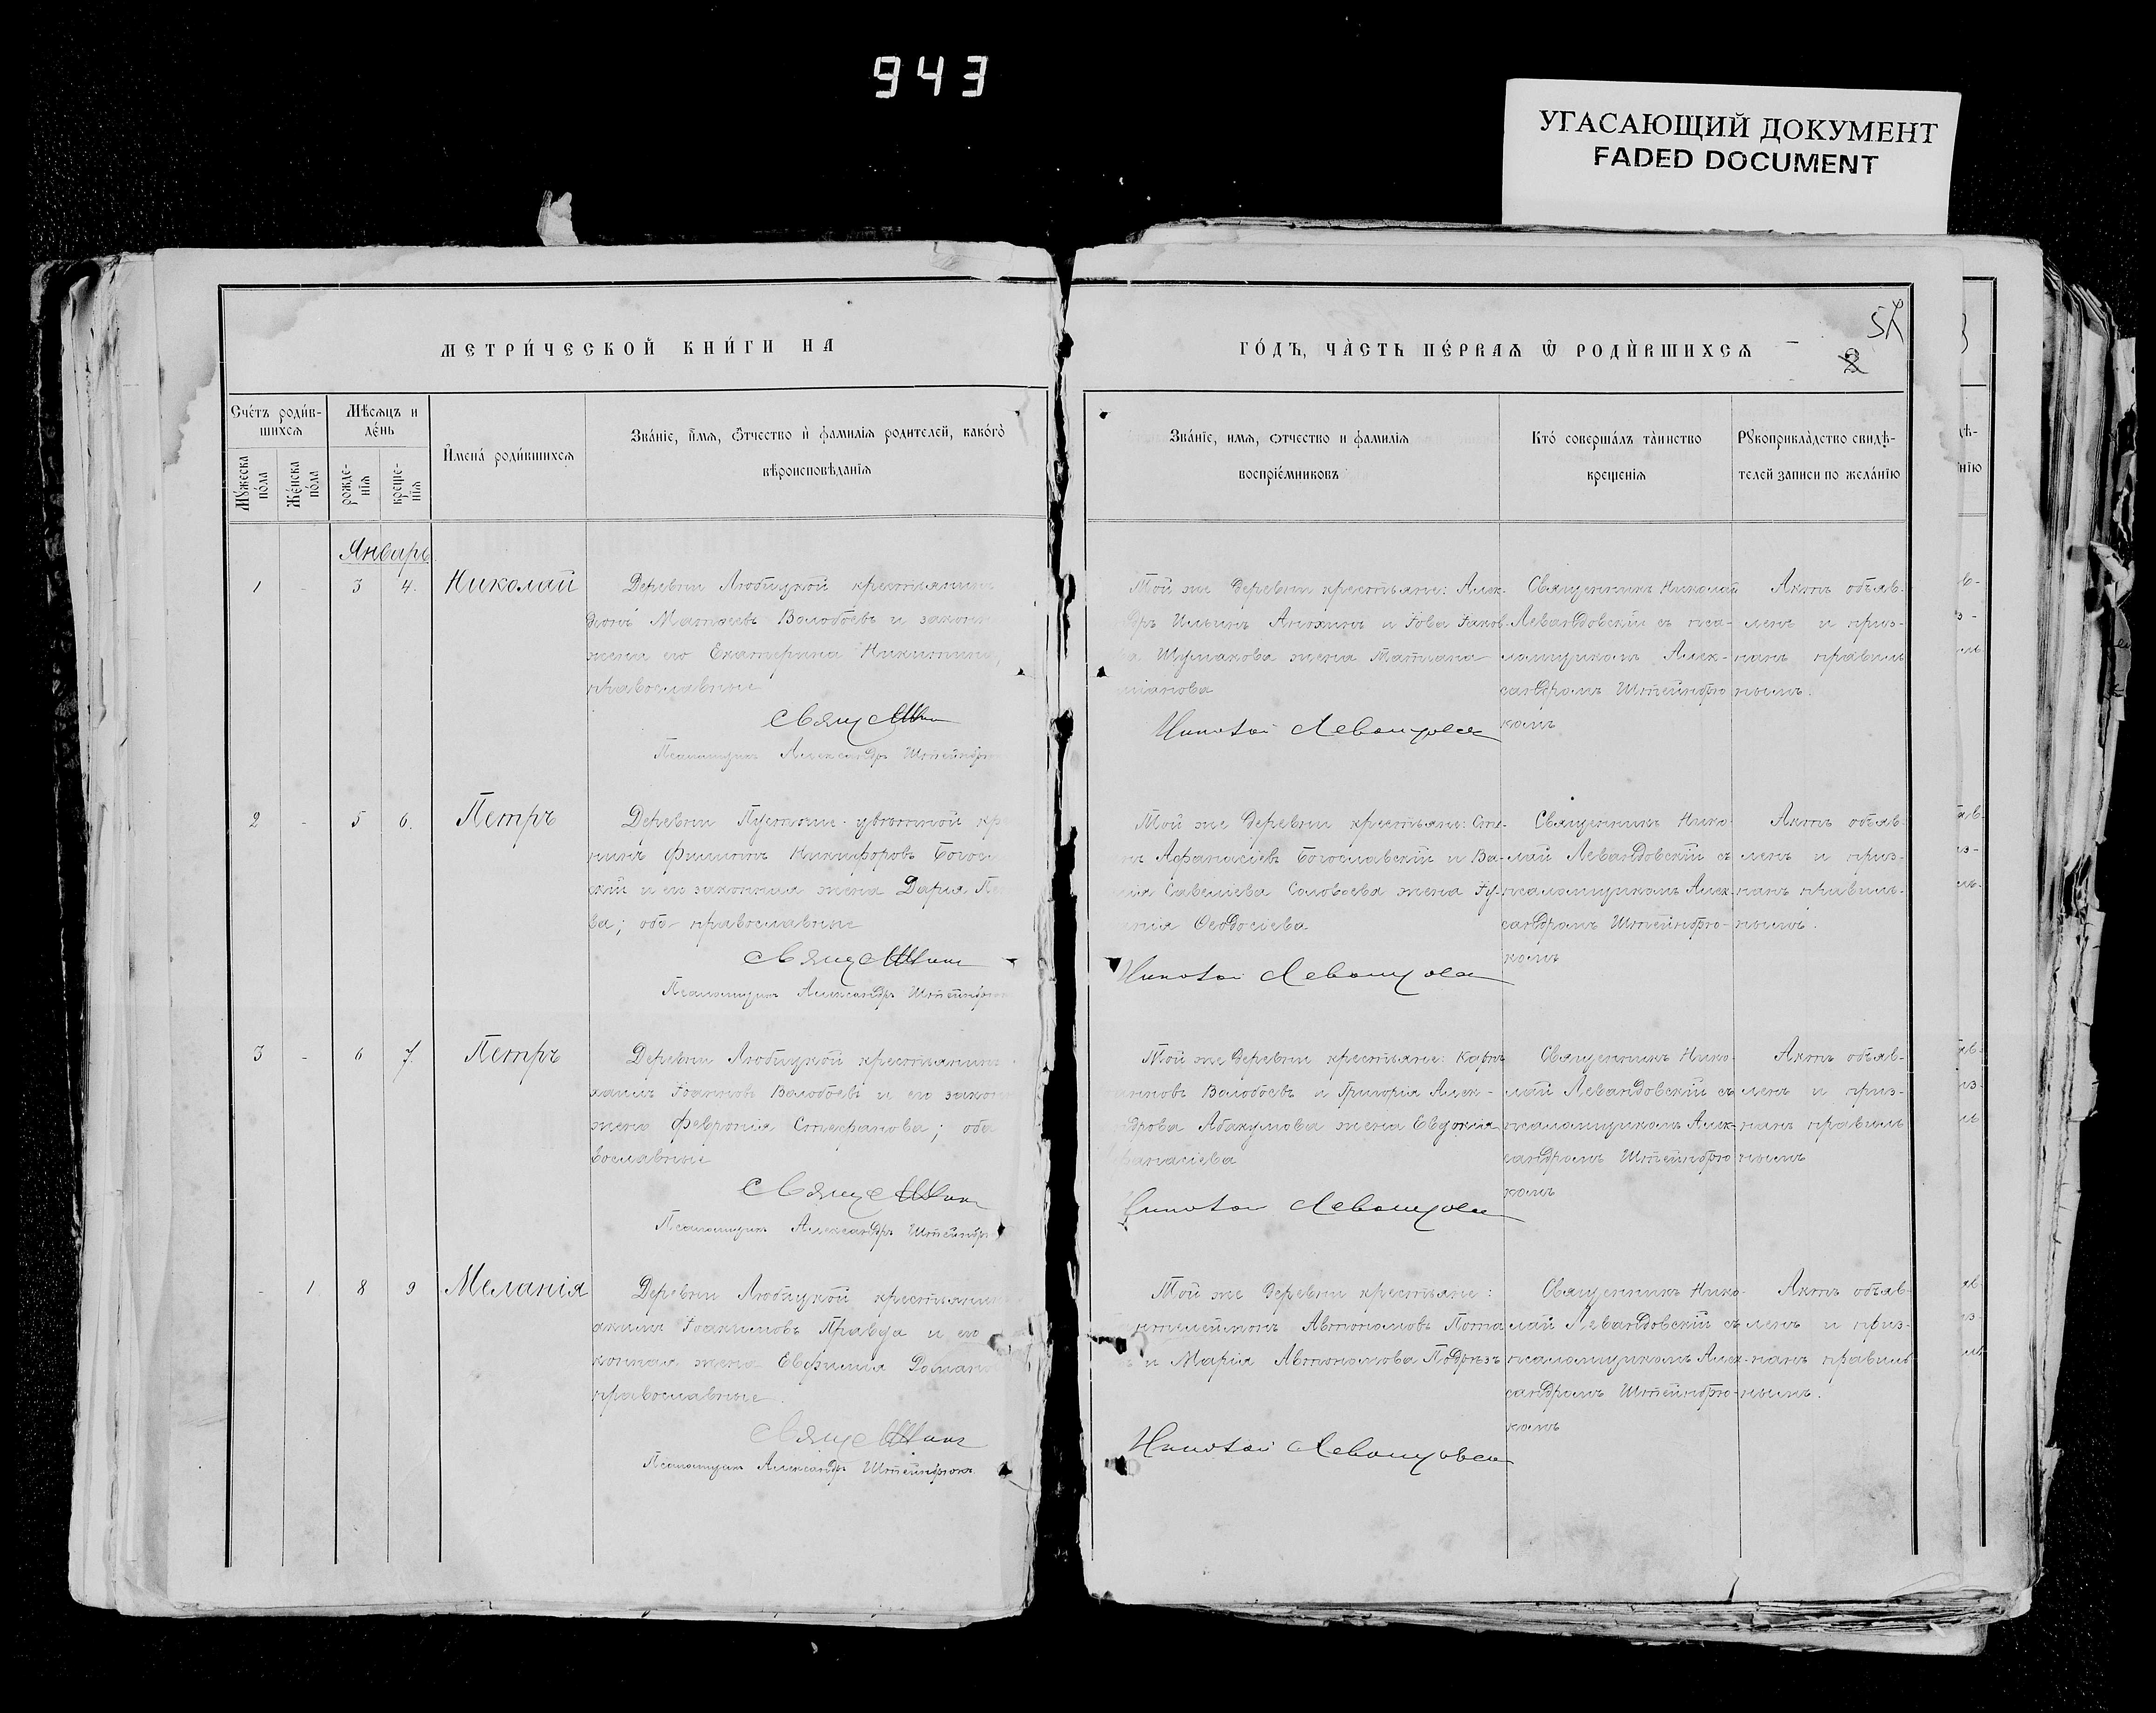 943
УГАСАЮЩИЙ ДОКУМЕНТ
FADED DOCUMENT
МЕТРИ́ЧЕСКОЙ КНИ́ГИ НА
Сче́тъ роди́в-
шихсѧ
Мѣ́сѧцъ и
де́нь
И҆мена́ роди́вшихсѧ
Зва́нїе, и҆́мѧ, ѻ҆́тчество и҆ фамилїѧ родителей, како́гѡ
вѣроисповѣ́данїѧ
Мꙋ́жеска
по́ла
Же́нска
по́ла
рожде-
нїѧ
креще-
нїѧ
Январь
1
-
3
4.
Николай
Деревни Любицкой крестьянин
Матѳеевъ Волобоевъ и законн
жена его Екатерина Никитина,
православные
Свящ
Псаломщикъ Александръ Штейнбрю
2
-
5
6.
Петръ
Деревни Пустынно-цвѣтной кр
нинъ Филиппъ Никифоровъ Богос
скій и его законная жена Дарія
ва; оба православные
Свящ
Псаломщикъ Александръ Штейнбрю
3
-
6
7.
Петръ
Деревни Любицкой крестьянинъ
хаилъ Іоанновъ Волобоевъ и его закон
жена Февронія Стефанова; оба
вославные
Свящ
Псаломщикъ Александръ Штейнбр
-
1
8
9
Меланія
Деревни Любицкой крестьянин
акимъ Іоакимовъ Правда и его
конная жена Евфимія Роман
православные.
Свящ
Псаломщикъ Александръ Штейнбрюкъ
ГО́ДЪ, ЧА́СТЬ ПЕ́РВАѦ Ѡ҆ РОДИ́ВШИХСѦ
2
Зва́нїе, имѧ, ѻтчество и фамилїѧ
воспрїе́мниковъ
Кто́ соверша́лъ та́инство
крещенїѧ
Рꙋкоприкла́дство свидѣ́-
телей записи по жела́нїю
Той же деревни крестьяне: Алек-
дръ Ильинъ Анохинъ и Іова Іаков
ва Шумакова жена Татіана
Николай Левандовск
Священникъ Николай
Левандовскій съ пса-
ломщикомъ Алек-
сандромъ Штейнбрю
комъ
Актъ объяв-
ленъ и приз-
нанъ правиль
нымъ.
Той же деревни крестьяне: Сте-
нъ Аѳанасіевъ Богославскій и Ва-
Савеліева Соловьева жена
Ѳеодосіева
Николай Левандовск
Священникъ Нико-
лай Левандовскій съ
псаломщикомъ Алек-
сандромъ Штейнбрю-
комъ
Актъ объяв-
ленъ и приз-
нанъ правиль-
нымъ.
Той же деревни крестьяне: Карпъ
анновъ Волобоевъ и Григорія Алек-
дрова Абакумова жена Евдокія
ѳанасіева
Николай Левандовск
Священникъ Нико-
лай Левандовскій съ
псаломщикомъ Алек-
сандромъ Штейнбрю
комъ
Актъ объяв-
ленъ и приз-
нанъ правиль
нымъ
Той же деревни крестьяне:
нтелеймонъ Автономовъ Пота
и Марія Автономова Подрѣзъ
Николай Левандовск
Священникъ Нико-
лай Левандовскій съ
псаломщикомъ Алек-
сандромъ Штейнбрю-
комъ
Актъ объяв-
ленъ и приз-
нанъ правиль
нымъ.